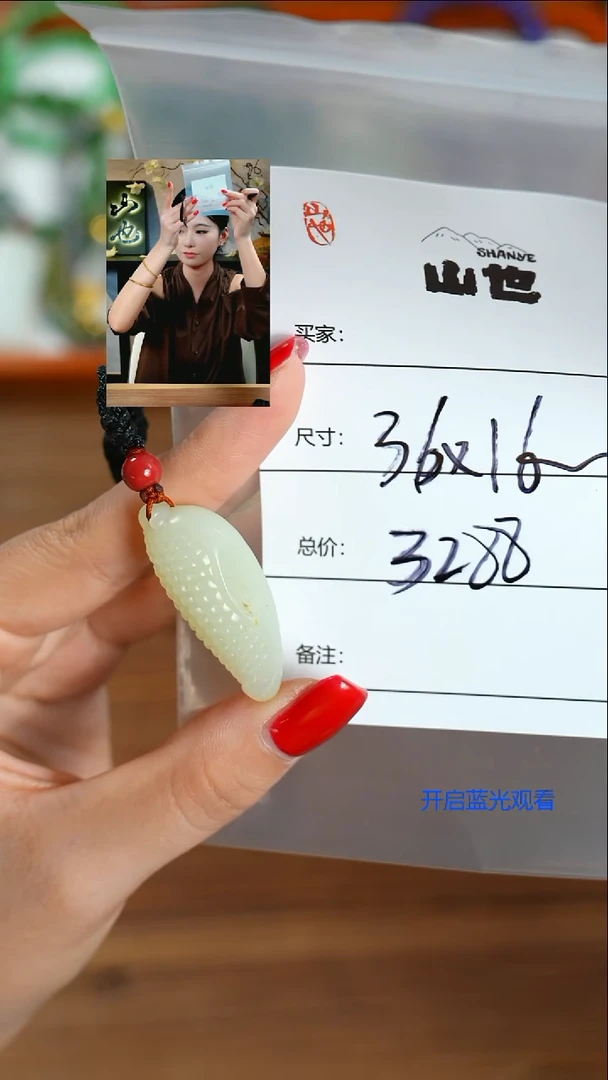 山也
SHANYE
山也
买家：
尺寸： 36x16
总价： 3288
备注：
开启蓝光观看